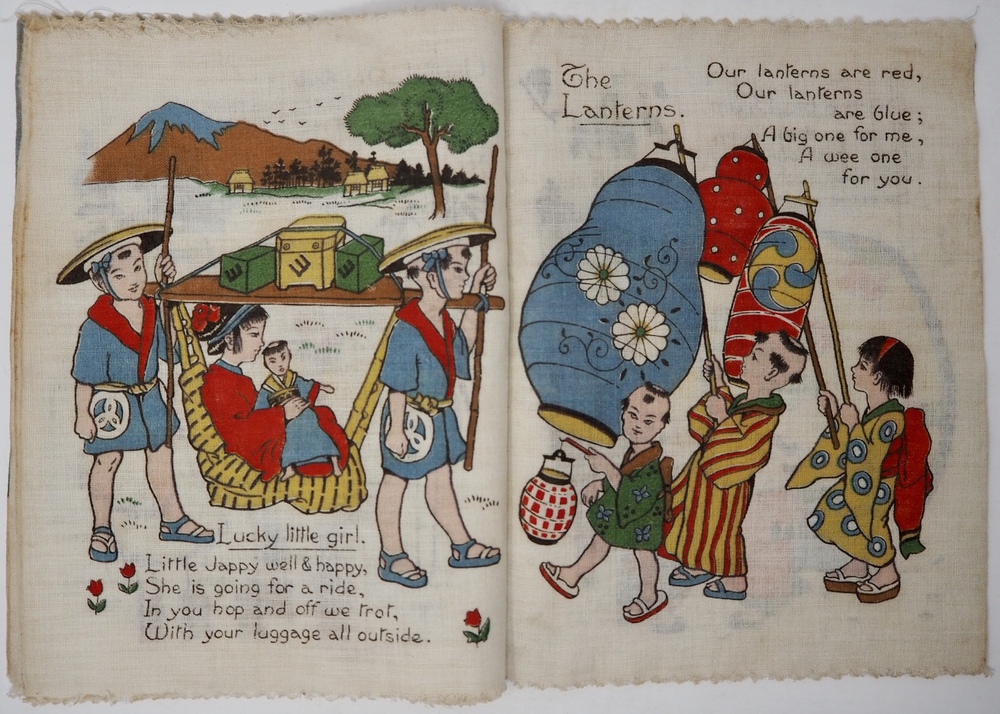 Lucky little girl.
Little Jappy well & happy,
She is going for a ride,
In you hop and off we trot,
With your luggage all outside.
The
Lanterns.
Our lanterns are red,
Our lanterns
are blue;
A big one for me,
A wee one
for you.